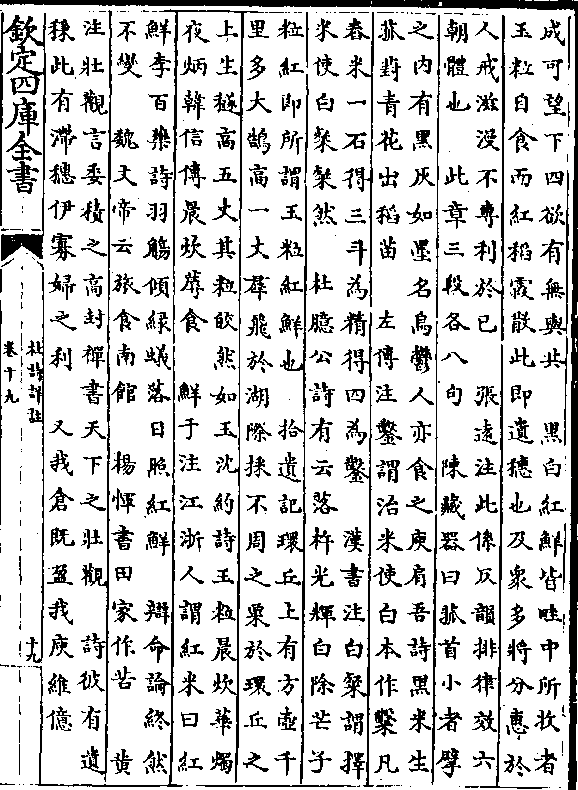 成可望下四欲有無與共　黑白紅鮮皆畦中所收者
玉粒自食而紅稻霞散此即遺穗也及衆多將分惠於
人戒滋没不專利於已　張遠注此係仄韻排律效六
朝體也　此章三段各八句　陳藏器曰菰首小者擘
之内有黑灰如墨名烏鬱人亦食之庾肩吾詩黑米生
菰葑青花出稻苗　左傳注鑿謂治米使白本作糳凡
舂米一石得三斗為精得四為鑿　漢書注白粲謂擇
米使白粲粲然　杜臆公詩有云落杵光輝白除芒子
粒紅即所謂玉粒紅鮮也　拾遺記環丘上有方壺千
里多大鵠高一丈羣飛於湖際採不周之粟於環丘之
上生穟高五丈其粒皎然如玉沈約詩玉粒晨炊華燭
夜炳韓信傳晨炊蓐食　鮮于注江浙人謂紅米曰紅
鮮李百藥詩羽觴傾綠蟻落日照紅鮮　辯命論終然
不變　魏文帝云旅食南館　楊惲書田家作苦　黄
注壯觀言委積之高封禪書天下之壯觀　詩彼有遺
秉此有滯穗伊寡婦之利　又我倉既盈我庾維億
欽定四庫全書
杜詩詳註
卷十九
十九